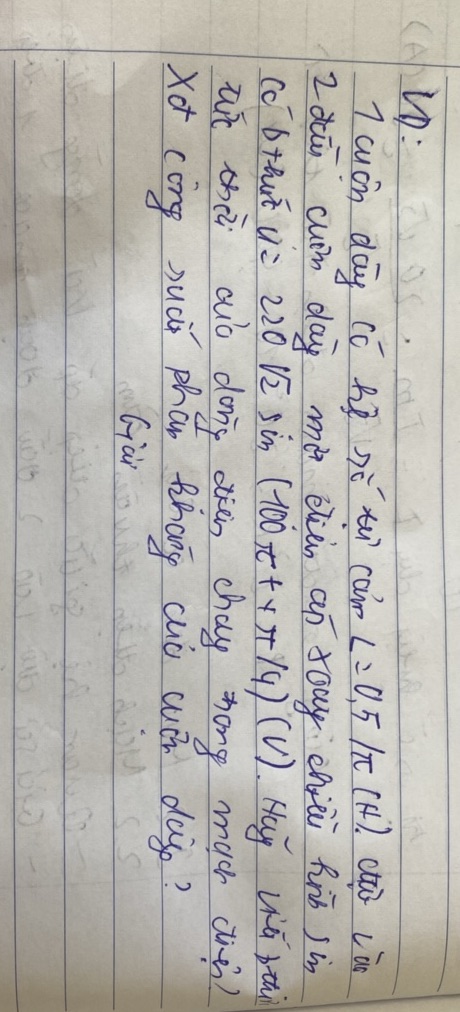 VD:
1 cuôn dây có hệ số tự cảm L = 0,5/π (H). đặt vào
2 đầu cuôn dây một điện áp xoay chiều hình sin
có b thức u = 220√2 sin (100πt + π/4) (V). Hãy viết biểu
thức thời của dòng điện chạy trong mạch điện?
Xđ công suất phản kháng của cuôn dây?
Giải